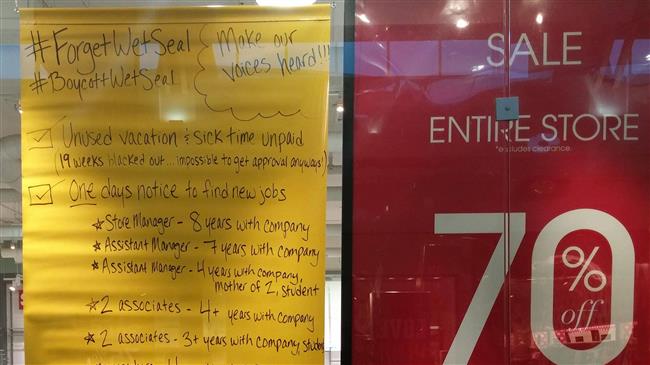 #ForgetWetSeal
#BoycottWetSeal
Make our
voices heard!!!
Unused vacation & sick time unpaid
(19 weeks blacked out... impossible to get approval anyways!)
One days notice to find new jobs
Store Manager - 8 years with company
Assistant Manager - 7 years with company
Assistant Manager - 4 years with company,
mother of 2, student
2 associates - 4+ years with company
2 associates - 3+ years with company,
SALE
ENTIRE STORE
*excludes clearance.
70% off